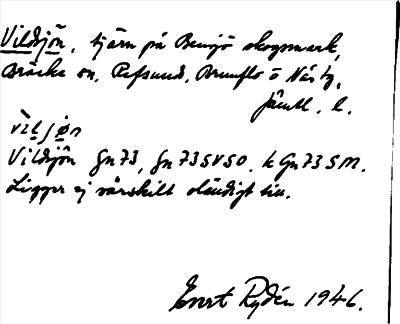 Vildsjön, tjärn på Bensjö skogsmark,
Bräcke sn, Refsund, Brunflo o Näs tg,
Jämtl. l.
vìlsjøn
Vildsjön Gn73, Gn73SVSO, k Gn73SM.
Ligger ej särskilt oländigt till.
Evert Rydén 1946.